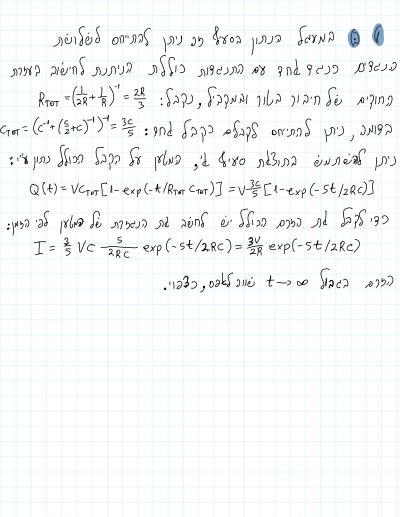 ב 1 במעגל הנתון בסעיף זה ניתן להתייחס לשלושת
הנגדים כנגד אחד עם התנגדות כוללת הניתנת לחישוב בעזרת
החוקים של חיבור בטור ובמקביל, נקבל: R_TOT = (1/2R + 1/R)^-1 = 2R/3
בדומה, ניתן להתייחס לקבלים כקבל אחד: C_TOT = (C^-1 + (C/2 + C)^-1)^-1 = 3C/5
ניתן להשתמש בתוצאת סעיף א', המטען על הקבל הכולל נתון ע"י:
Q(t) = VC_TOT [1 - exp(-t/R_TOT C_TOT)] = V 3C/5 [1 - exp(-5t/2RC)]
כדי לקבל את הזרם הכולל יש לחשב את הנגזרת של המטען לפי הזמן:
I = 3/5 VC 5/2RC exp(-5t/2RC) = 3V/2R exp(-5t/2RC)
הזרם בגבול t → ∞ שווה לאפס, כצפוי.